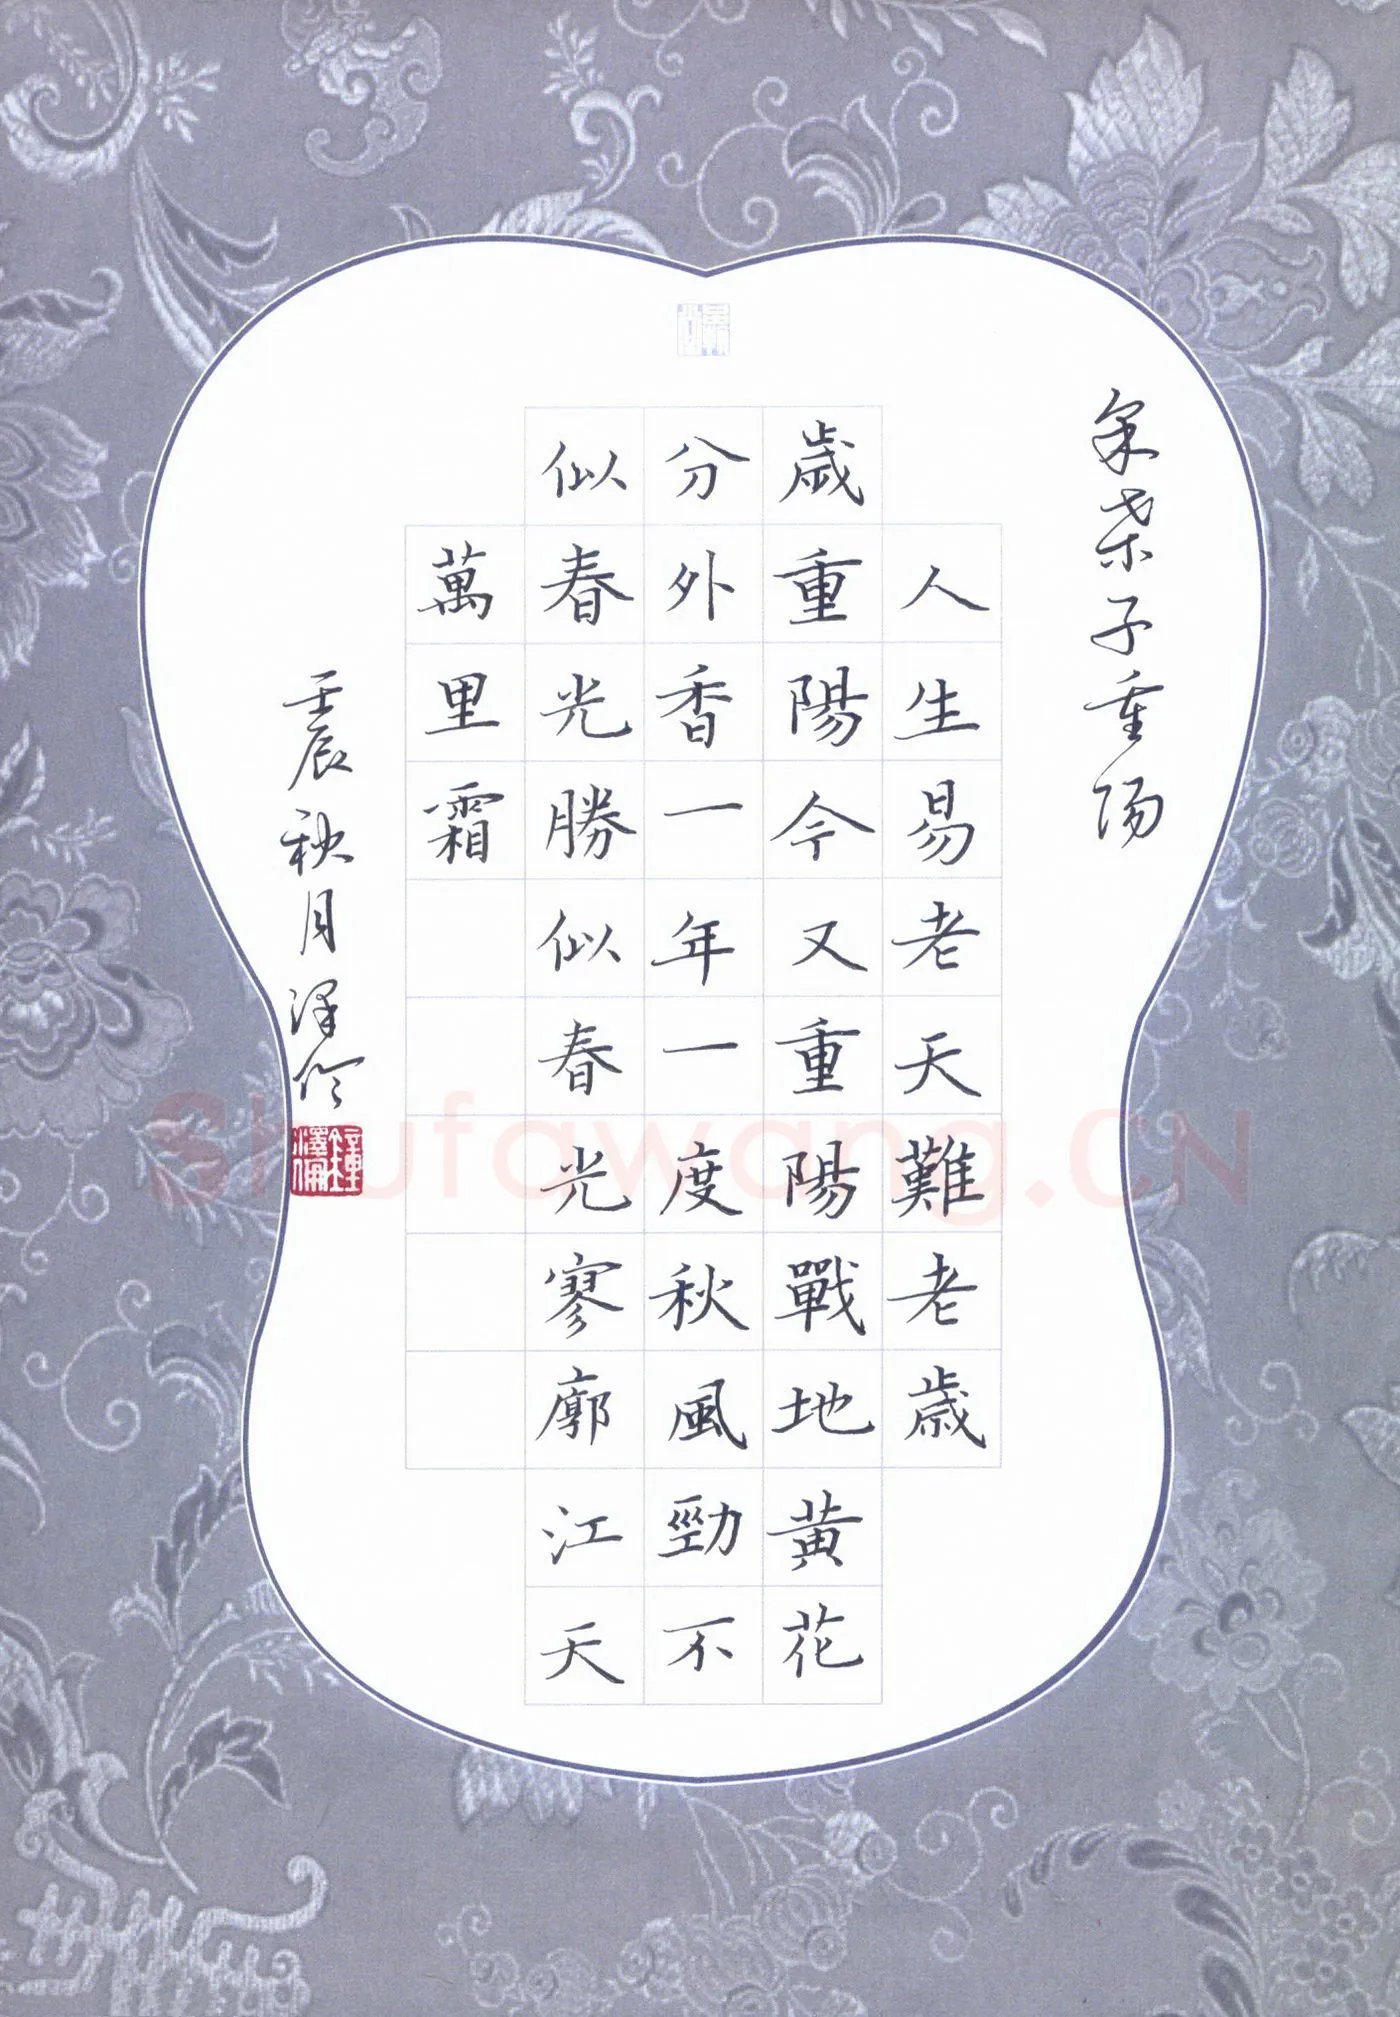 采桑子重陽
人生易老天難老歲
歲重陽今又重陽戰地黃花
分外香一年一度秋風勁不
似春光勝似春光寥廓江天
萬里霜
壬辰秋月澤倫
鐘澤倫
Shufawang.CN